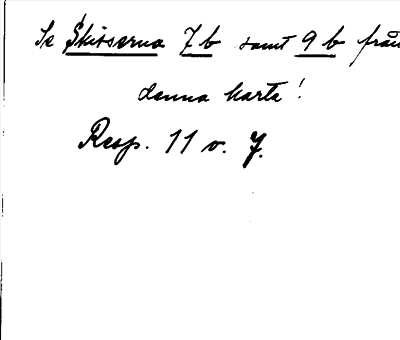 Se Skisserna 7 b samt 9 b från
denna karta!
Resp. 11 o. 7.